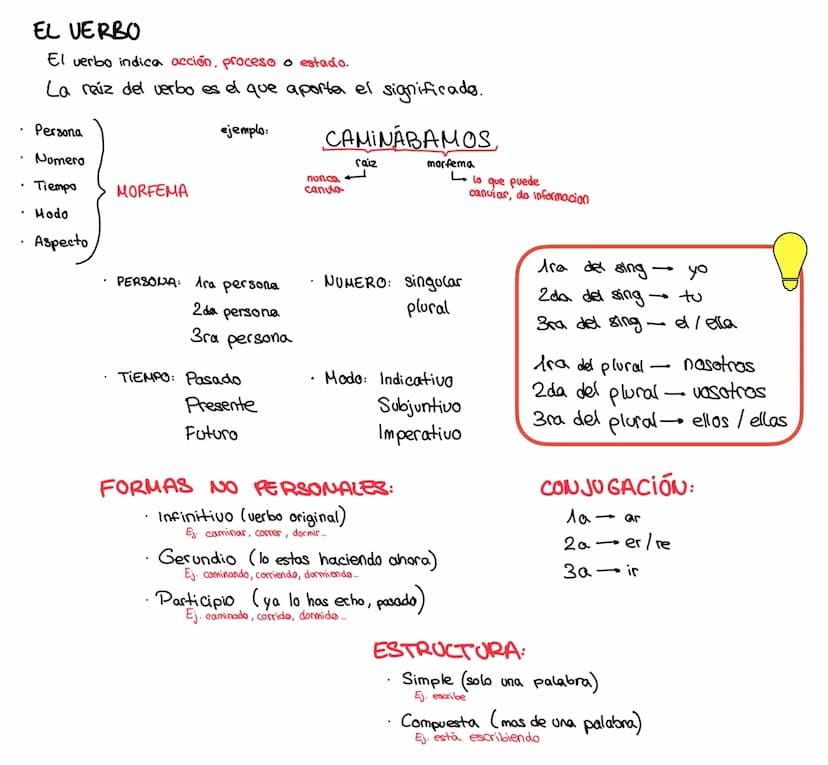 EL VERBO
El verbo indica acción, proceso o estado.
La raíz del verbo es el que aporta el significado.
· Persona
· Numero
· Tiempo
· Modo
· Aspecto
MORFEMA
ejemplo:
CAMINÁBAMOS
raiz
morfema
nunca
canvia
lo que puede
canviar, da informacion
· PERSONA: 1ra persona
2da persona
3ra persona
· NUMERO: singular
plural
· TIEMPO: Pasado
Presente
Futuro
· Modo: Indicativo
Subjuntivo
Imperativo
1ra del sing → yo
2da del sing → tu
3ra del sing → el / ella
1ra del plural → nosotros
2da del plural → vosotros
3ra del plural → ellos / ellas
FORMAS NO PERSONALES:
· Infinitivo (verbo original)
Ej. caminar, correr, dormir...
· Gerundio (lo estas haciendo ahora)
Ej. caminando, corriendo, dormiendo...
· Participio (ya lo has echo, pasado)
Ej. caminado, corrido, dormido...
CONJUGACIÓN:
1a → ar
2a → er/re
3a → ir
ESTRUCTURA:
· Simple (solo una palabra)
Ej. escribe
· Compuesta (mas de una palabra)
Ej. està escribiendo